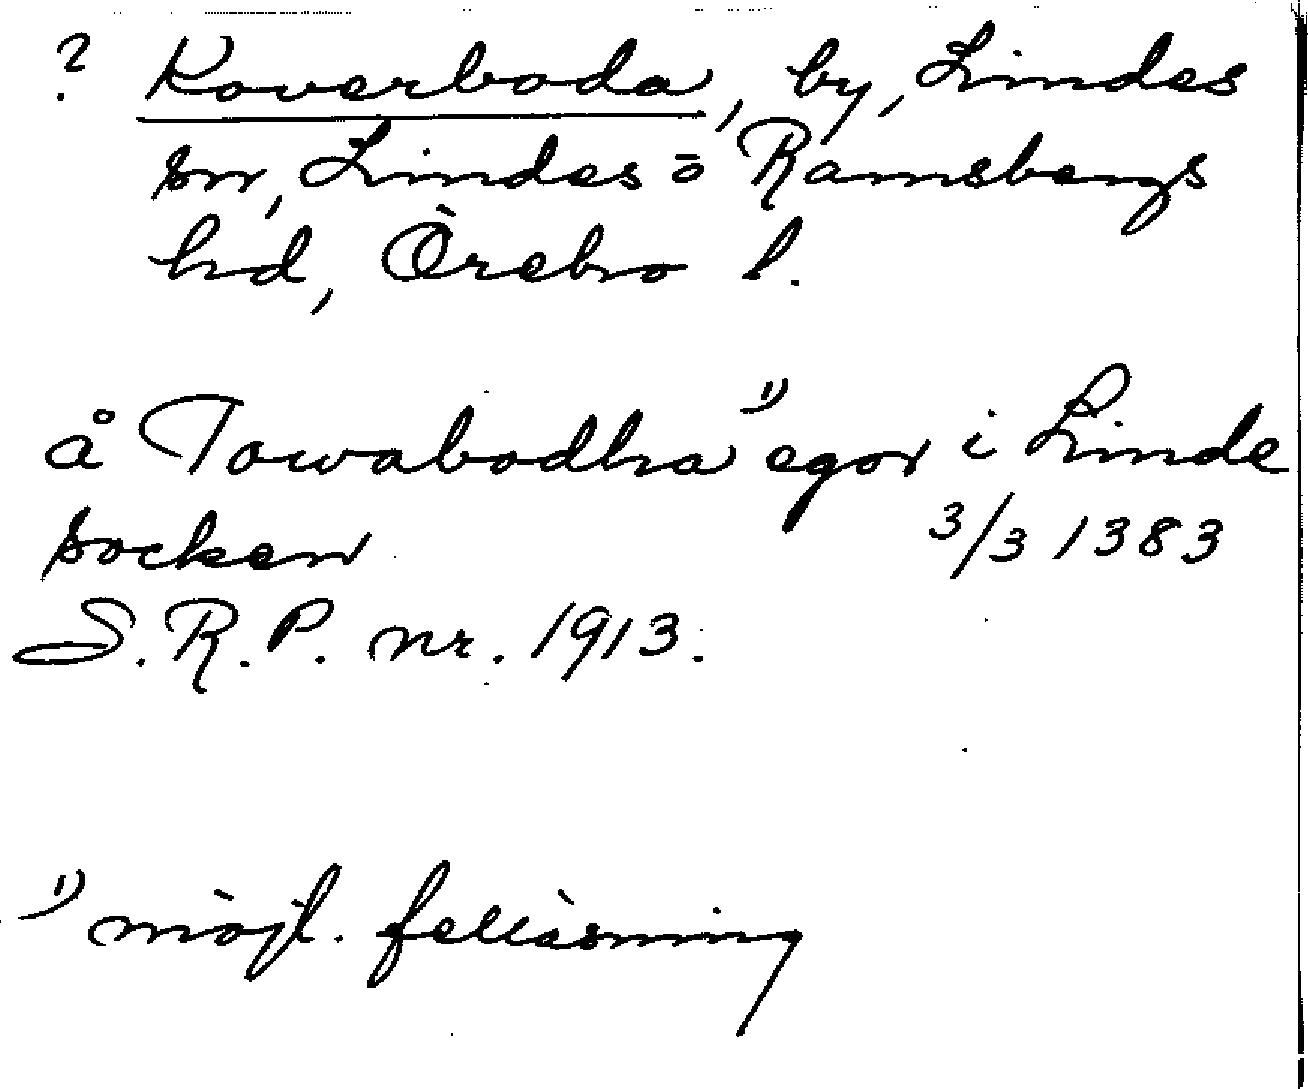 ? Koverboda, by, Lindes
sn, Lindes o Ramsbergs
hd, Örebro l.
å Towabodha 1) egor i Linde
socken 3/3 1383
S.R.P. nr. 1913.
1) möjl. felläsning